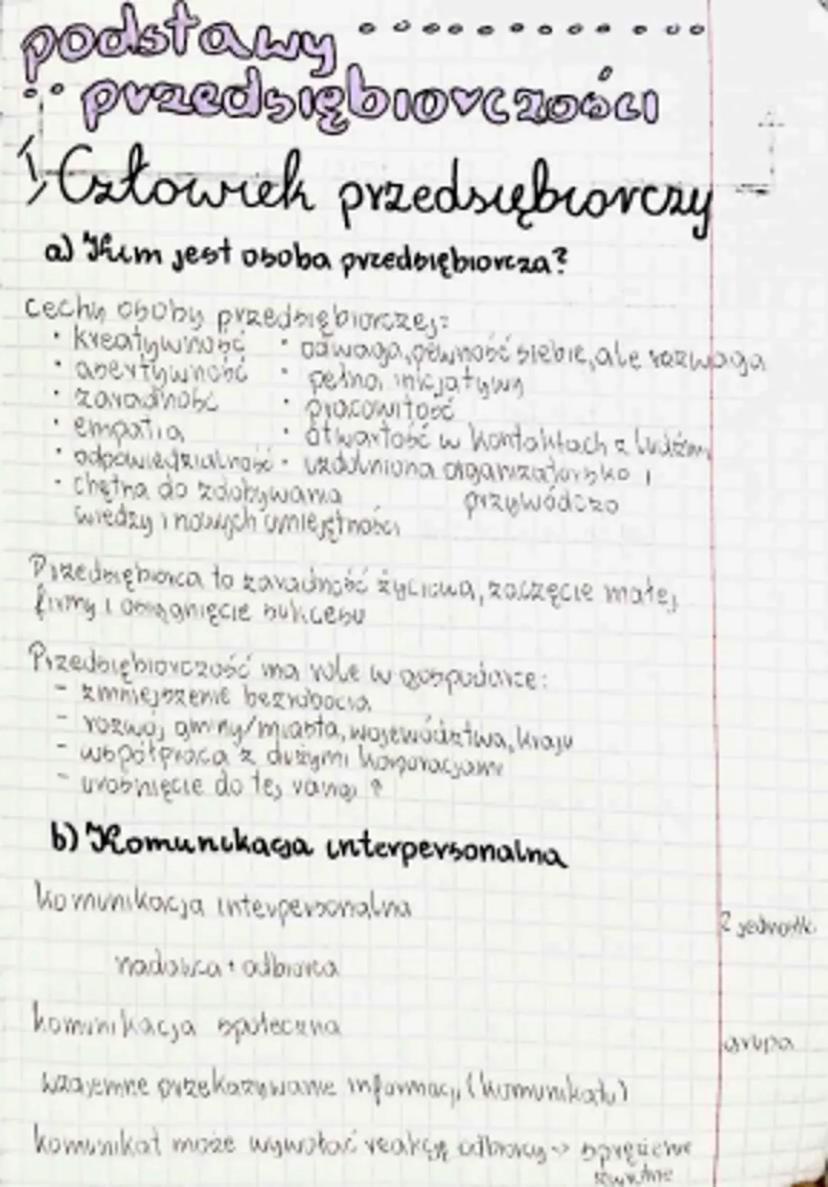 podstawy
przedsiębiorczości
1) Człowiek przedsiębiorczy
a) Kim jest osoba przedsiębiorcza?
cechy osoby przedsiębiorczej:
• kreatywność
• asertywność
• zaradność
• empatia
• odpowiedzialność
• chętna do zdobywania
wiedzy i nowych umiejętności
• odwaga, pewność siebie, ale rozwaga
• pełna inicjatywy
• pracowitość
• otwartość w kontaktach z ludźmi
• uzdolniona organizatorsko i
przywódczo
Przedsiębiorca to zaradność życiowa, zaczęcie małej
firmy i osiągnięcie sukcesu
Przedsiębiorczość ma role w gospodarce:
- zmniejszenie bezrobocia
- rozwój gminy/miasta, województwa, kraju
- współpraca z dużymi korporacjami
- urośnięcie do tej rangi
b) Komunikacja interpersonalna
komunikacja interpersonalna
2 jednostki
nadawca i odbiorca
komunikacja społeczna
grupa
wzajemne przekazywanie informacji (komunikatu)
komunikat może wywołać reakcję odbiorcy -> sprzężenie
zwrotne